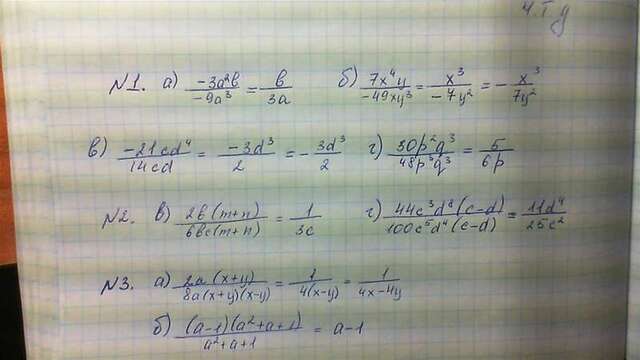 ч.т.д
№1. а) -3a²b/-9a³ = b/3a б) 7x⁴y/-49xy³ = x³/-7y² = - x³/7y²
в) -21cd⁴/14cd = -3d³/2 = - 3d³/2 г) 30p²q³/48p³q³ = 5/6p
№2. в) 2b(m+n)/6bc(m+n) = 1/3c г) 44c³d⁸(c-d)/100c⁵d⁴(c-d) = 11d⁴/25c²
№3. а) 2a(x+y)/8a(x+y)(x-y) = 1/4(x-y) = 1/4x-4y
б) (a-1)(a²+a+1)/a²+a+1 = a-1